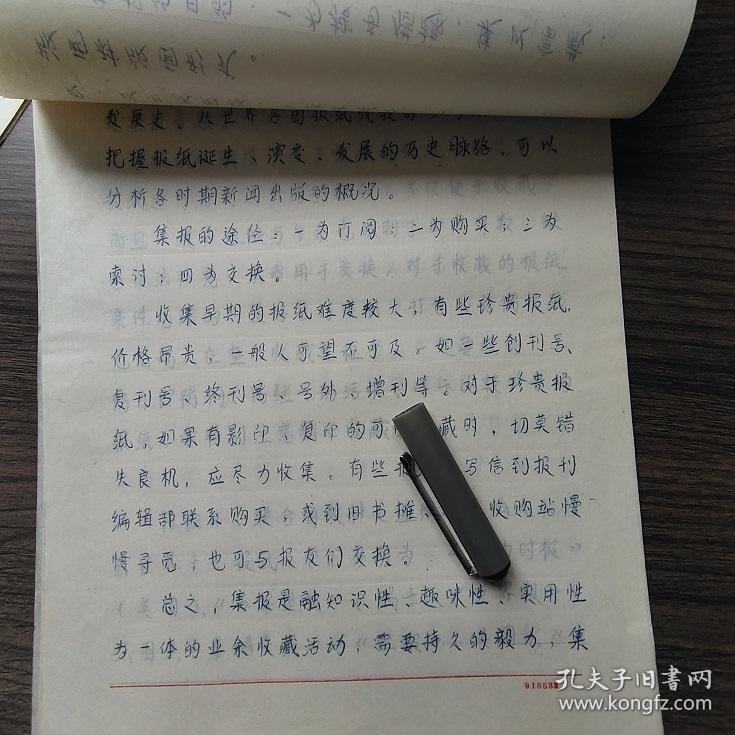 发展史，从世界各国报纸
把握报纸诞生、演变、发展的历史脉络，可以
分析各时期新闻出版的概况。
集报的途径：一为订阅；二为购买；三为
索讨；四为交换。
收集早期的报纸难度较大，有些珍贵报纸，
价格昂贵，一般人可望不可及，如一些创刊号、
复刊号、终刊号、号外、增刊等。对于珍贵报
纸，如果有影印、复印的可 藏时，切莫错
失良机，应尽力收集。有些报 写信到报刊
编辑部联系购买，或到旧书摊 收购站慢
慢寻觅，也可与报友们交换。
总之，集报是融知识性、趣味性、实用性
为一体的业余收藏活动，需要持久的毅力，集
91058
孔夫子旧书网
www.kongfz.com